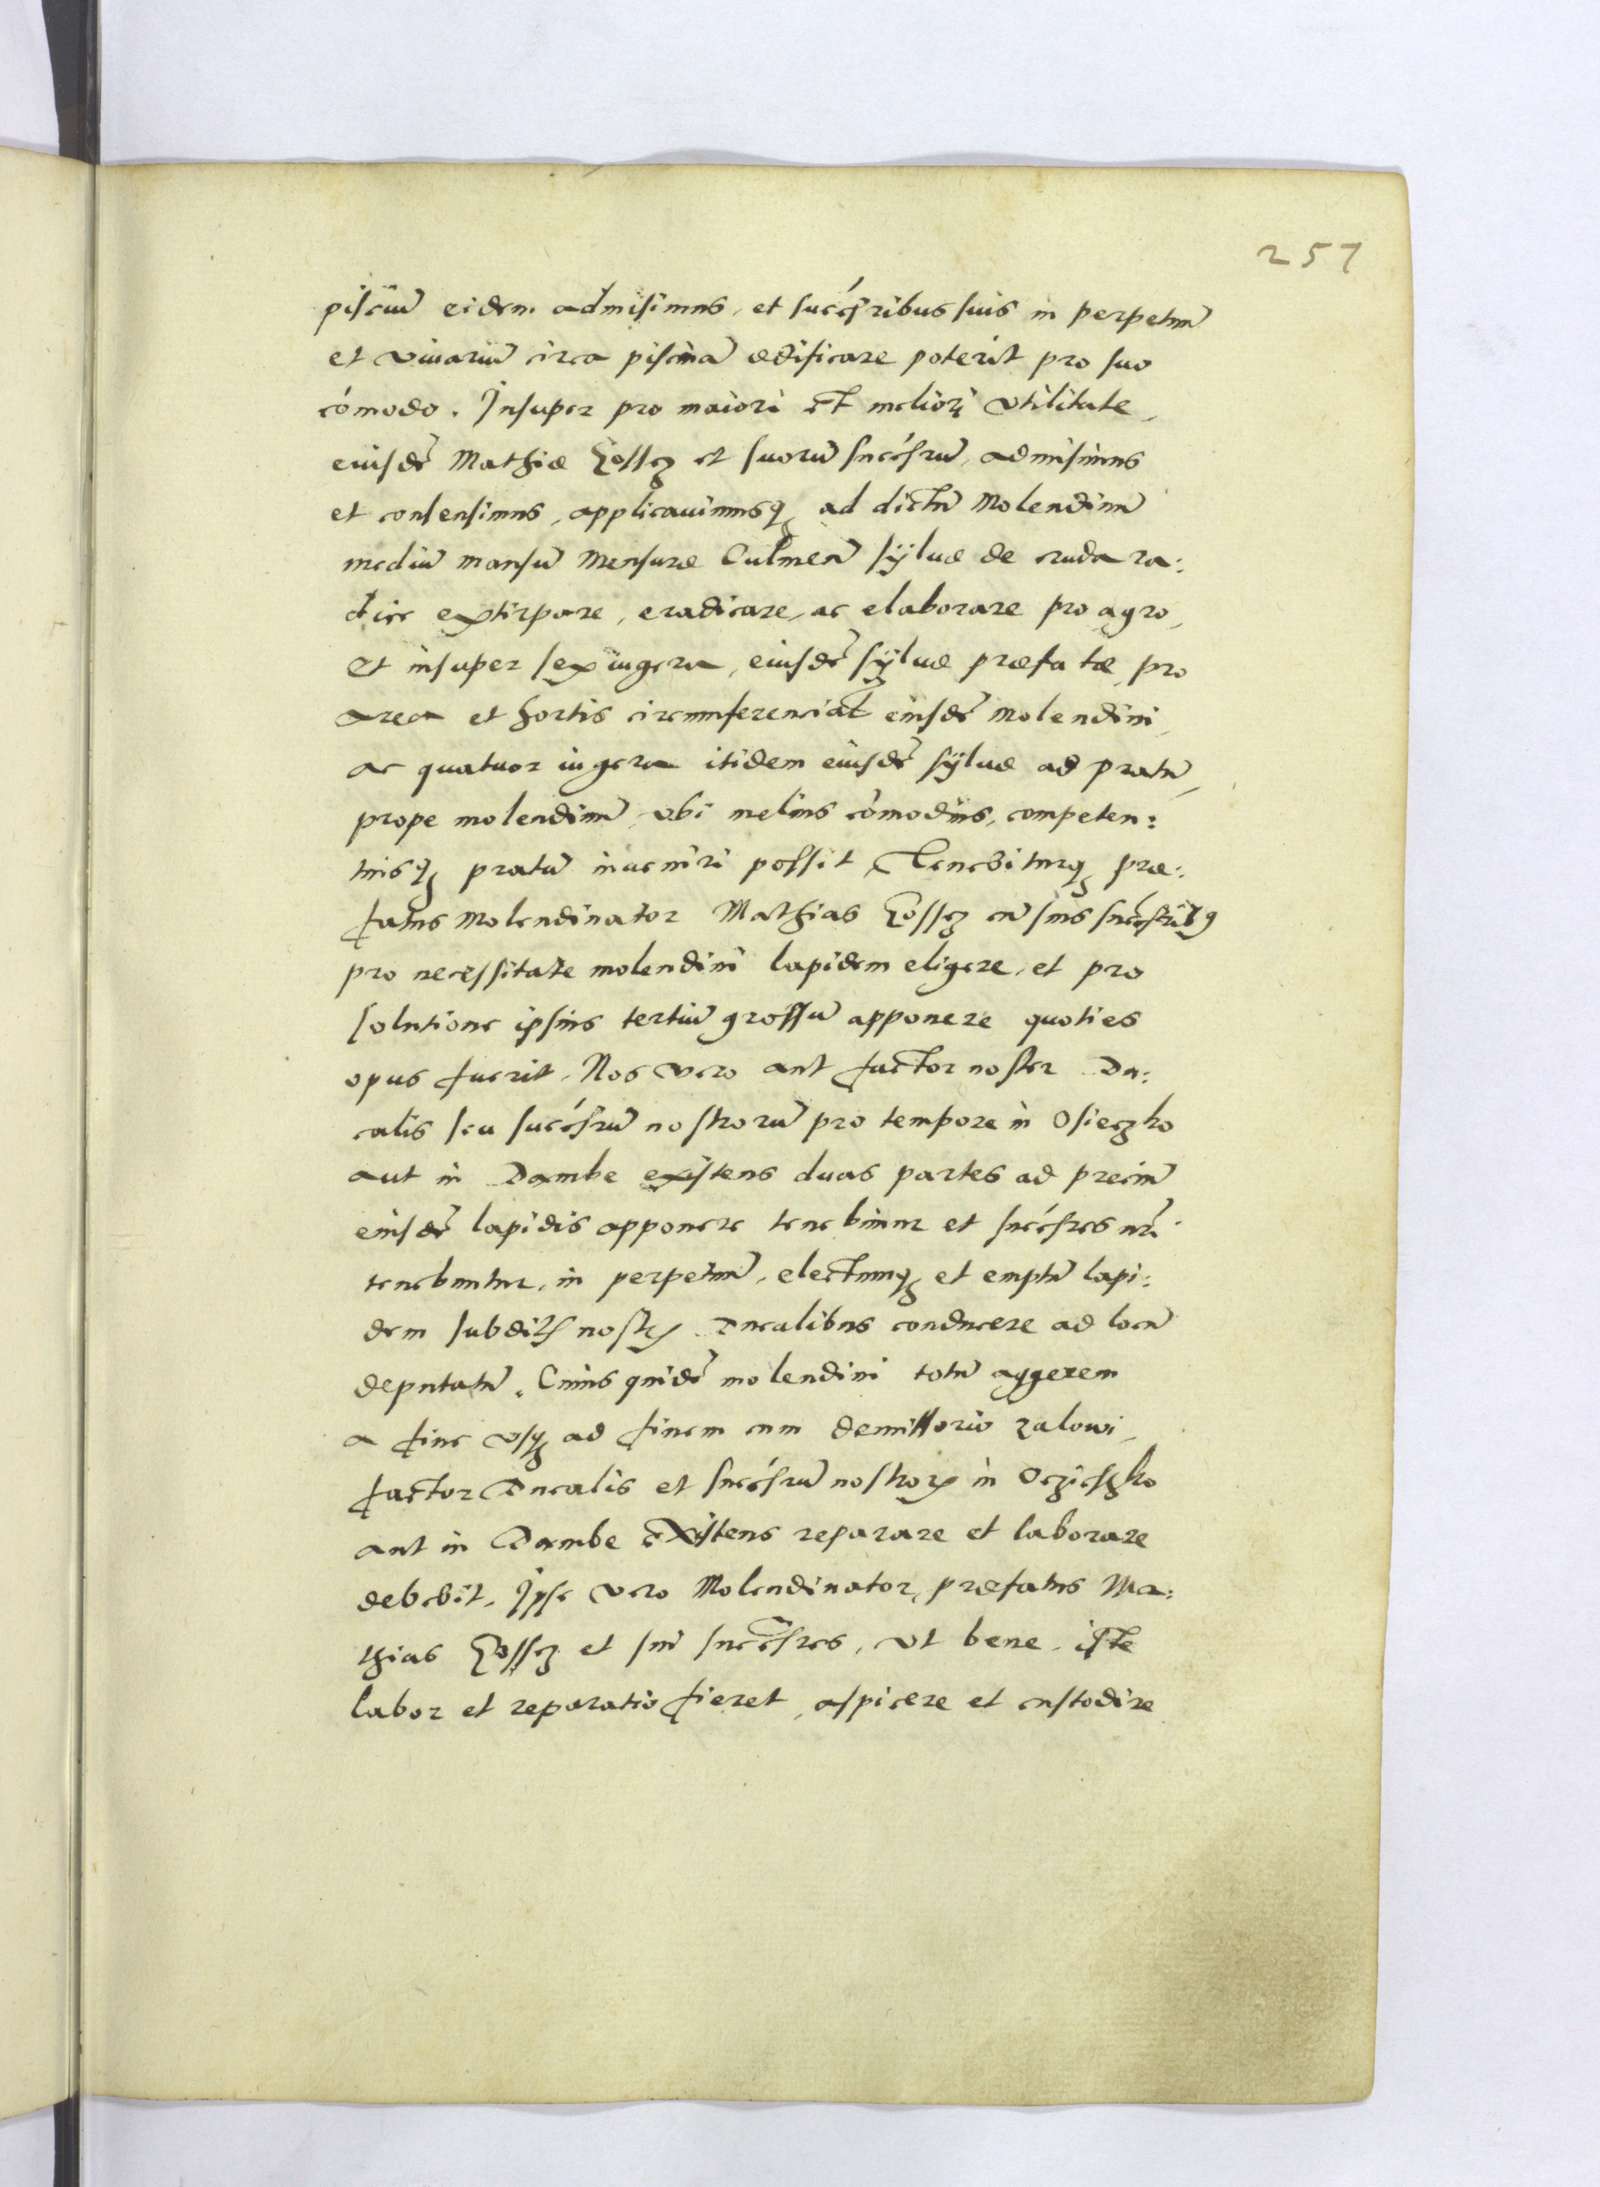 257
pisciũ eidem admisimus, et succéſribus suis in perpetuũ
et viuariũ circa piscinã ædificare poterit pro suo
cómodo. Insuper pro maiori et meliori vtilitate,
eiusdẽ Mathiæ et suorũ succéſrũ, admisimus
et consensimus, applicauimusq₃ ad dictũ Molendinũ
mediũ mansũ mensuræ Culmeñ sÿluæ de cruda ra:
dice extirpare, eradicare, ac elaborare pro agro,
et insuper sex iugera, eiusdẽ sÿluæ præfatæ, pro
area et hortis circumferenciaɫ eiusdẽ Molendini,
ac quatuor iugera itidem eiusdẽ sÿluæ ad pratũ,
prope molendinũ, vbi melius cõmodius, competen:
tiusq₃ pratũ inueniri possit, Tenebiturq₃ præ:
fatus Molendinator Mathias cũ suis succéſribꝰ
pro necessitate molendini lapidem eligere, et pro
solutione ipsius tertiũ grossũ apponere quoties
opus fuerit. Nos vero aut factor noster Du:
calis seu succéſrũ nostrorũ pro tempore in Osieczko
aut in Dambe existens duas partes ad preciũ
eiusdẽ lapidis apponere tenebimur et succéſres nr̃i
tenebuntur, in perpetuũ, electumq₃ et emptũ lapi:
dem subditis nostris Ducalibus conducere ad locũ
deputatũ. Cuius quidẽ molendini totũ aggerem
a fine vsq₃ ad finem cum demissorio zalowi,
factor Ducalis et succéſrũ nostrorꝝ in Oczieszko
aut in Dambe existens reparare et laborare
debebit. Ipse vero Molendinator, præfatus Ma:
thias et sui succẽſres, vt bene iste
labor et reparatio fieret, aspicere et custodire